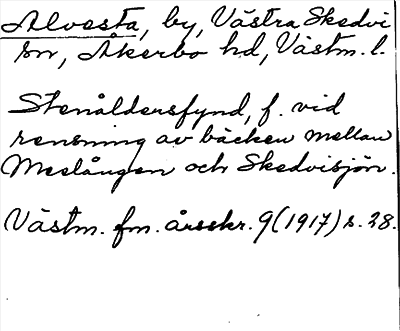 Alvesta, by, Västra Skedvi
sn, Åkerbo hd, Västm. l.
Stenåldersfynd, f. vid
rensning av bäcken mellan
Meslången och Skedvisjön.
Västm. fm. årsskr. 9 (1917) s. 28.